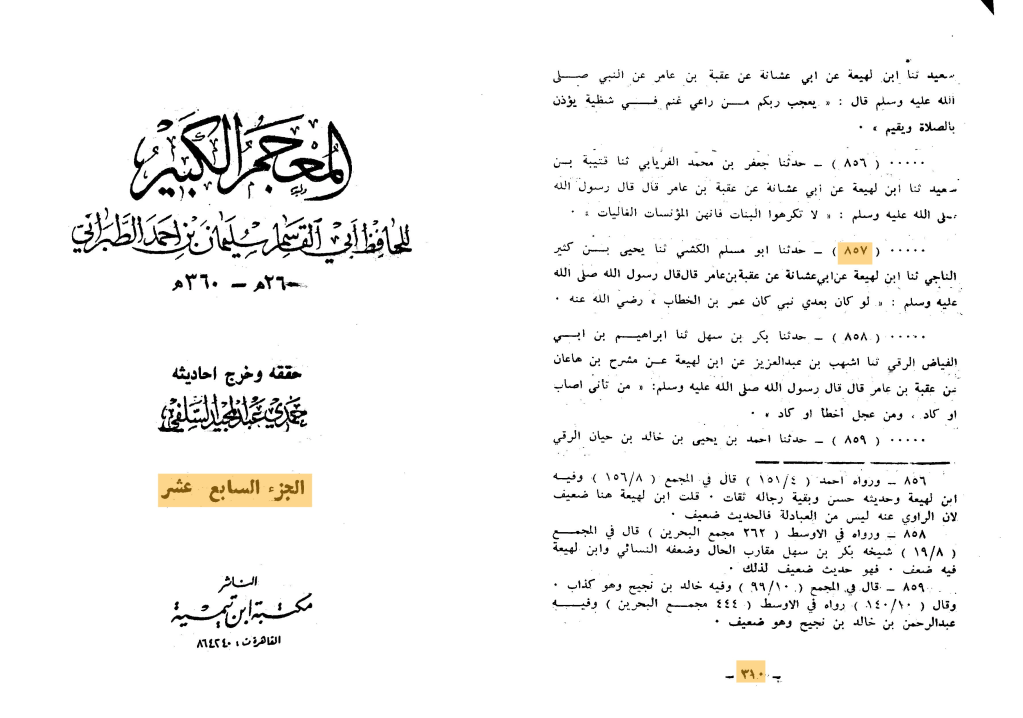 المعجم الكبير
للحافظ أبي القاسم سليمان بن احمد الطبراني
٢٦٠ه‍ – ٣٦٠ه‍
حققه وخرج احاديثه
حمدي عبد المجيد السلفي
الجزء السابع عشر
الناشر
مكتبة ابن تيمية
القاهرة ت : ٨٦٤٢٤٠
سعيد ثنا ابن لهيعة عن ابي عشانة عن عقبة بن عامر عن النبي صلى
الله عليه وسلم قال : « يعجب ربكم من راعي غنم في شظية يؤذن
بالصلاة ويقيم » ٠
٠٠٠٠٠ ( ٨٥٦ ) – حدثنا جعفر بن محمد الفريابي ثنا قتيبة بن
سعيد ثنا ابن لهيعة عن أبي عشانة عن عقبة بن عامر قال قال رسول الله
صلى الله عليه وسلم : « لا تكرهوا البنات فانهن المؤنسات الغاليات » ٠
٠٠٠٠٠ ( ٨٥٧ ) – حدثنا ابو مسلم الكشي ثنا يحيى بن كثير
الناجي ثنا ابن لهيعة عن ابي عشانة عن عقبة بن عامر قال قال رسول الله صلى الله
عليه وسلم : « لو كان بعدي نبي كان عمر بن الخطاب » رضي الله عنه ٠
٠٠٠٠٠ ( ٨٥٨ ) – حدثنا بكر بن سهل ثنا ابراهيم بن ابي
الفياض الرقي ثنا اشهب بن عبدالعزيز عن ابن لهيعة عن مشرح بن هاعان
عن عقبة بن عامر قال قال رسول الله صلى الله عليه وسلم: « من تأنى اصاب
او كاد ، ومن عجل أخطأ او كاد » ٠
٠٠٠٠٠ ( ٨٥٩ ) – حدثنا احمد بن يحيى بن خالد بن حيان الرقي
٨٥٦ – ورواه احمد ( ١٥١/٤ ) قال في المجمع ( ١٥٦/٨ ) وفيه
ابن لهيعة وحديثه حسن وبقية رجاله ثقات ٠ قلت ابن لهيعة هنا ضعيف
لان الراوي عنه ليس من العبادلة فالحديث ضعيف ٠
٨٥٨ – ورواه في الاوسط ( ٢٦٢ مجمع البحرين ) قال في المجمع
( ١٩/٨ ) شيخه بكر بن سهل مقارب الحال وضعفه النسائي وابن لهيعة
فيه ضعف ٠ فهو حديث ضعيف لذلك ٠
٨٥٩ – قال في المجمع ( ٩٩/١٠ ) وفيه خالد بن نجيح وهو كذاب ٠
وقال ( ١٤٠/١٠ ) رواه في الاوسط ( ٤٤٤ مجمع البحرين ) وفيه
عبدالرحمن بن خالد بن نجيح وهو ضعيف ٠
– ٣١٠ –